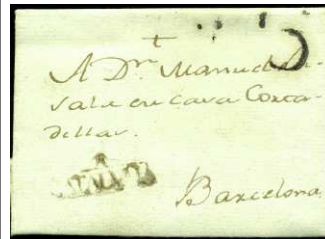 A Dn Manuel
Sala en casa Corta-
dellas.
Barcelona